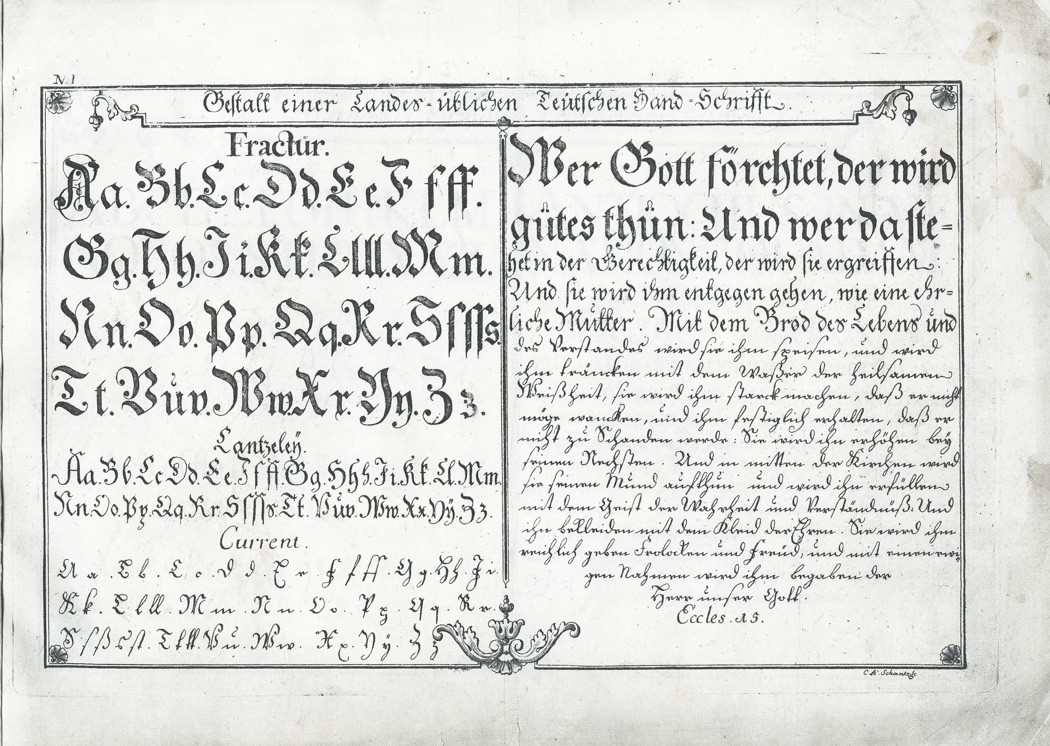 N. 1
Gestalt einer Landes-üblichen Teütschen Hand-Schrifft.
Fractur.
Aa. Bb. Cc. Dd. Ee. F f ff.
Gg. Hh. Ii. Kk. Llll. Mm.
Nn. Oo. Pp. Qq. Rr. Sſſſs.
Tt. Vüv. Ww. Xx. Yy. Zz.
Cantzeleÿ.
Aa. Bb. Cc. Dd. Ee. Ffff. Gg. Hhh. Ii. Kk. Ll. Mm.
Nn. Oo. Pp. Qq. Rr. Sſſſs. Tt. Vüv. Ww. Xx. Yÿ. Zz.
Current.
A a. B b. C c. D d. E e. F f ff. G g. H h. I i.
K k. L l ll. M m. N n. O o. P p. Q q. R r.
S ſ ß s st. T t tt. V u. W w. X x. Y y. Z z
Wer Gott förchtet, der wird
gütes thün: Und wer da ſte=
het in der Gerechtigkeit, der wird ſie ergreiffen:
Und ſie wird ihm entgegen gehen, wie eine ehr=
liche Mütter. Mit dem Brod des Lebens und
des Verstandes wird ſie ihm ſpeisen, und wird
ihm träncken mit dem Waßer der heilsamen
Weißheit, ſie wird ihm starck machen, daß er nicht
möge wancken, und ihm festiglich erhalten, daß er
nicht zu Schanden werde: Sie wird ihn erhöhen beÿ
seinen Nechsten. Und in mitten der Kirchen wird
ſie seinen Mund aufthun und wird ihn erfüllen
mit dem Geist der Wahrheit und Verständnüß. Und
ihn bekleiden mit dem Kleid der Ehren. Sie wird ihm
reichlich geben Frolocken und Freud, und mit einen ewi=
gen Nahmen wird ihm begaben der
Herr unser Gott.
Eccles. 15.
C. A. Schantz ſc.